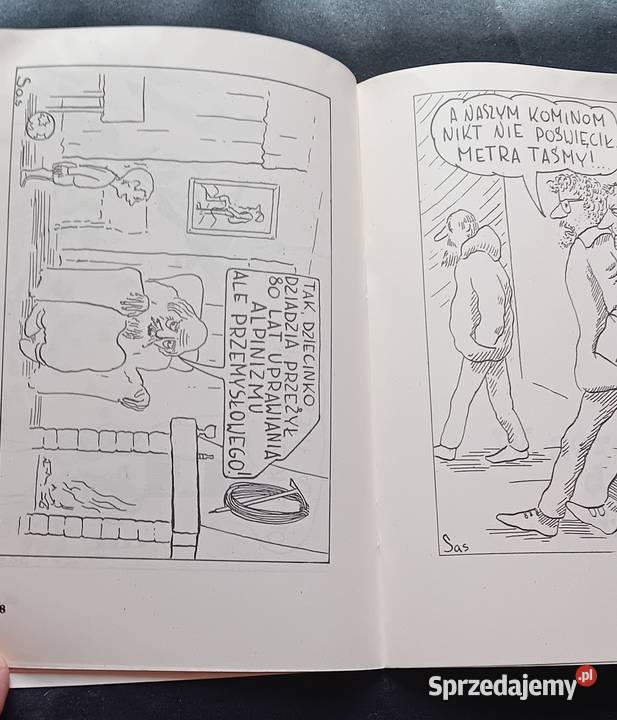 Sas
TAK, DZIECINKO
DZIADZIA PRZEŻYŁ
80 LAT UPRAWIANIA
ALPINIZMU
ALE PRZEMYSŁOWEGO!
8
A NASZYM KOMINOM
NIKT NIE POŚWIĘCIŁ
METRA TAŚMY!..
Sas
Sprzedajemy.pl